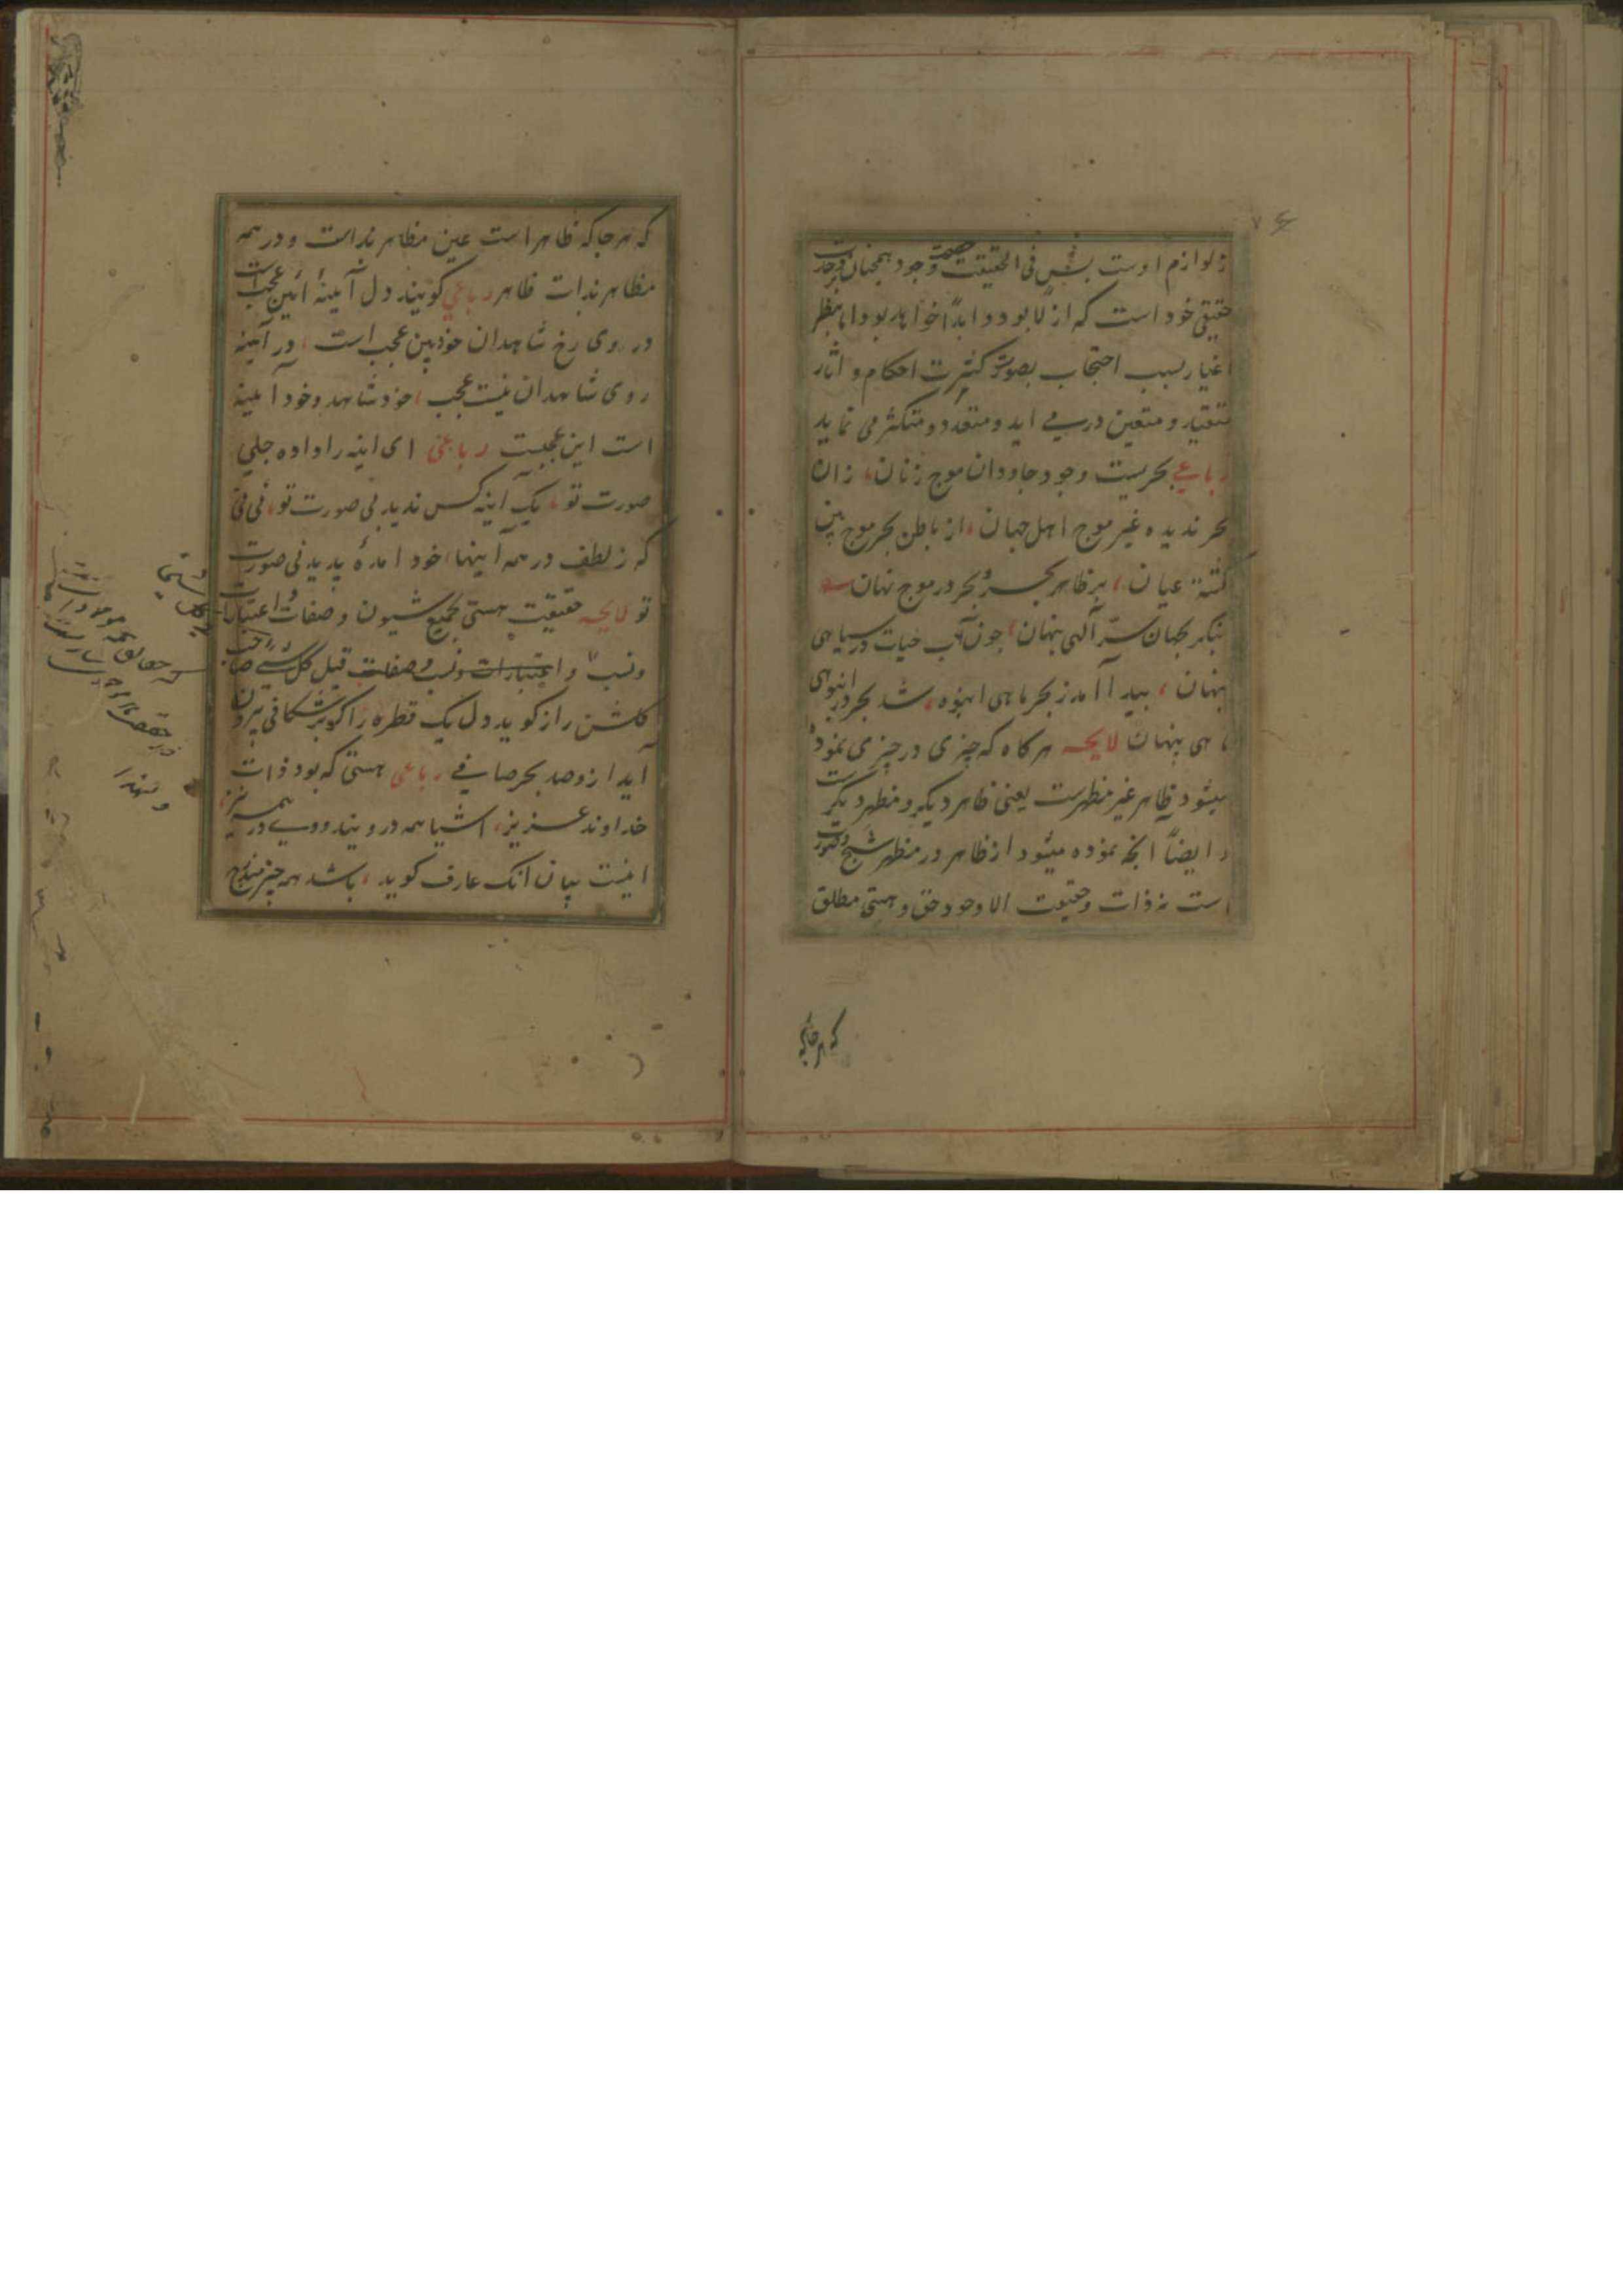 ز لوازم اوست پس فی الحقیقت حقیقت وجود همچنان بر وحدت
حقیقی خود است که ازلا بود و ابداً خواهد بود اما بنظر
اغیار بسبب احتجاب بصورت کثرت احکام و اثار
متقید و متعین درمی آید و متعدد و متکثر می نماید
رباعی بحریست وجود جاودان موج زنان، زان
بحر ندیده غیر موج اهل جهان، از باطن بحر موج بین
گشته عیان، بر ظاهر بحر و بحر در موج نهان
بنگر بجهان سر آلهی پنهان، چون آب حیات در سیاهی
پنهان، پیدا آمد ز بحر ماهی انبوه، شد بحر در انبوهی
ماهی پنهان لایحه هر کاه که چیزی در چیزی نموده
میشود ظاهر غیر مظهرست یعنی ظاهر دیکر و مظهر دیکرست
و ایضاً انچه نموده میشود از ظاهر در مظهر شبح و صورت
است نه ذات و حقیقت الا وجود حق و هستی مطلق
که هر جا که
که هر جا که ظاهر است عین مظاهر است و در همه
مظاهر بذات ظاهر رباعی کویند دل آینهٔ آئین عجب است
در وی رخ شاهدان خودبین عجب است، در آینه
روی شاهدان نیست عجب، خود شاهد و خود آینه
است این عجبست رباعی ای اینه را داده جلی
صورت تو، یک آینه کس ندید بی صورت تو، نی نی
که ز لطف در همه آینها، خود آمدهٔ پدید نی صورت
تو لایحه حقیقت هستی بجمیع شیون و صفات و اعتبارات
ونسب و اعتبارات و نسب و صفات قیل کل شی صاحب
کلشن راز کوید دل یک قطره را کر بر شکافی، برون
آید ازو صد بحر صافی رباعی هستی که بود ذات
خداوند عزیز، اشیا همه در ویند و وی در همه نیز،
اینست بیان آنک عارف کوید، باشد همه چیز مندرج